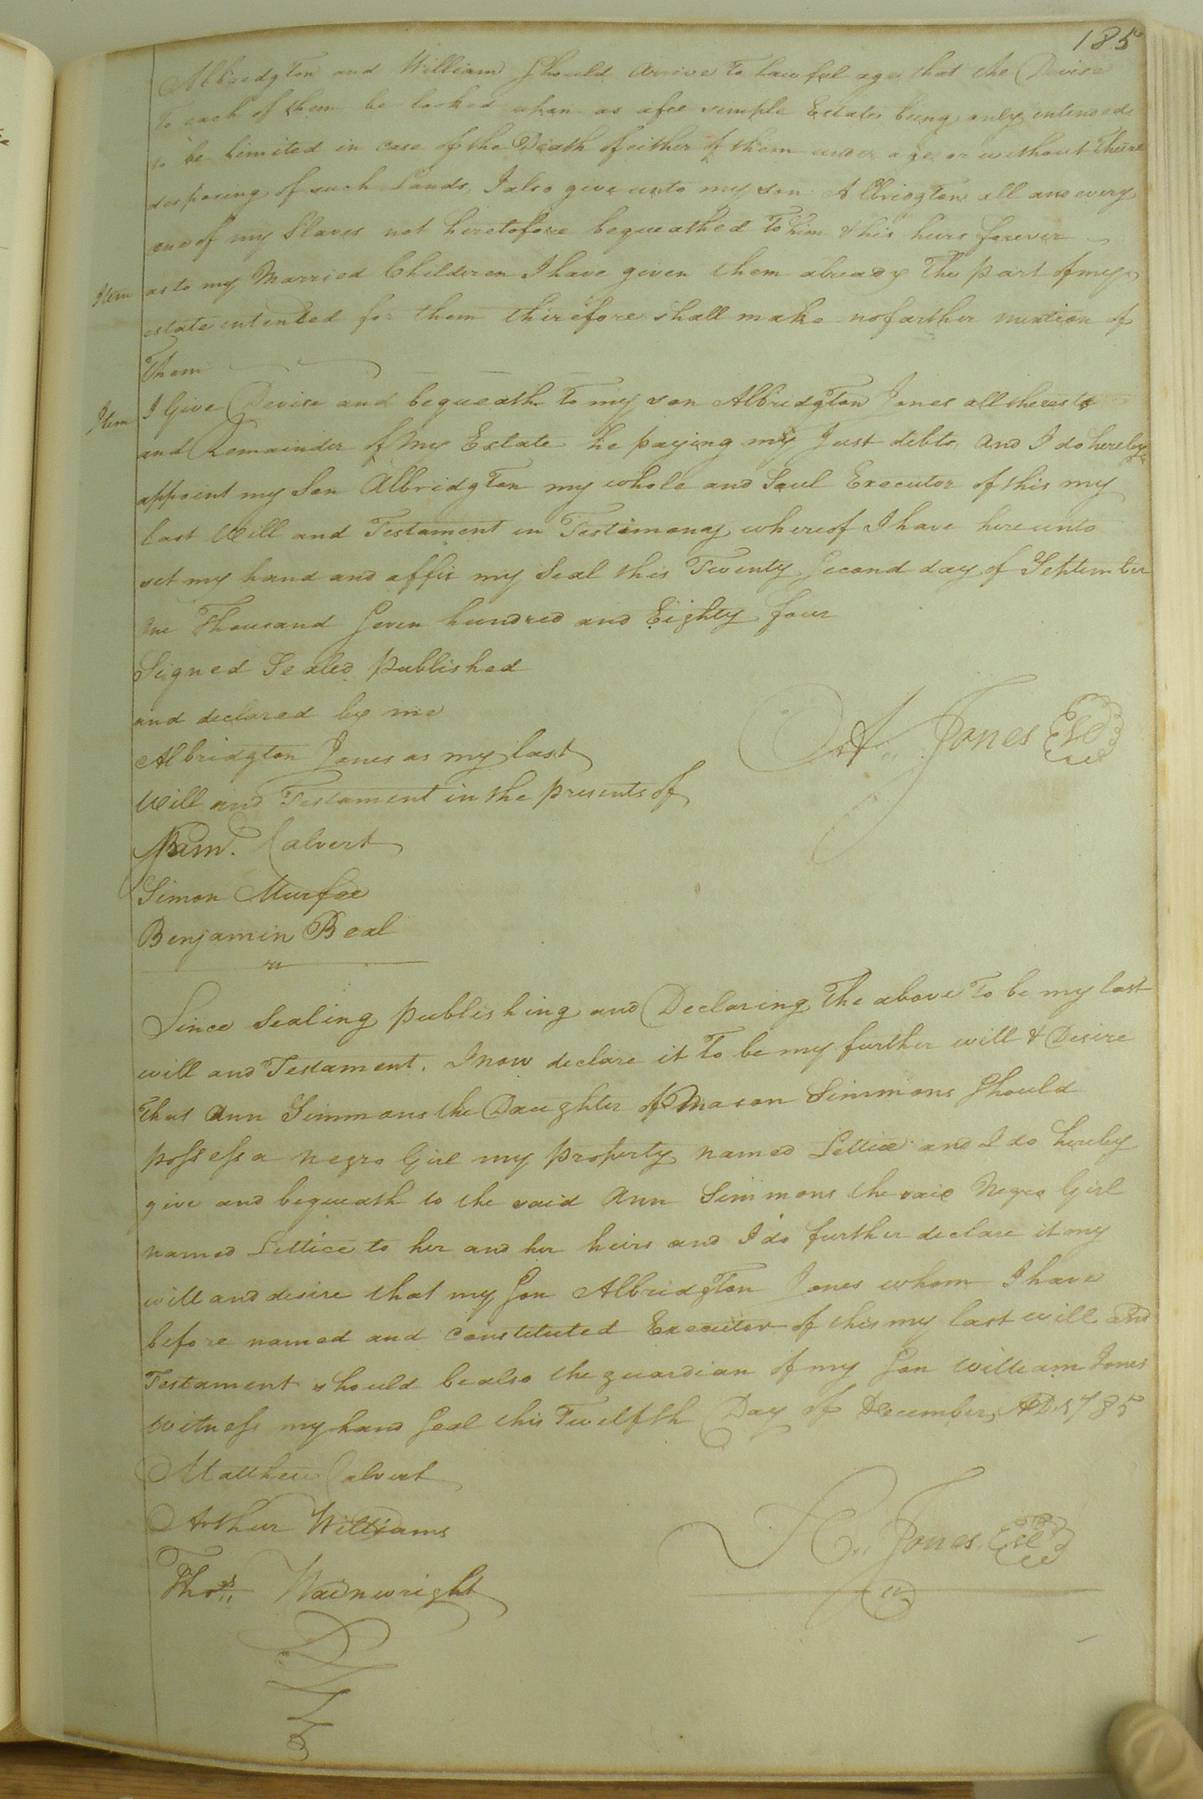 185
Albridgton and William Should arrive To lawful age, that the Devise
To each of them be looked upon as a fee simple Estate being only intended
to be Limited in case of the Death of either of them under age or without Their
desposing of such Lands, I also give unto my son Albridgton all and every
one of my Slaves not heretofore bequeathed To him & his heirs forever
Item as to my Married Children I have given them already The part of my
estate intended for them therefore shall make no farther mention of
Them
Item I Give Devise and bequeath To my son Albridgton Jones all the rest
and Remainder of my Estate he paying my Just debts, and I do hereby
appoint my Son Albridgton my whole and Soul Executor of this my
last Will and Testament in Testimony whereof I have hereunto
set my hand and affix my Seal this Twenty Second day of September
one Thousand Seven hundred and Eighty four
Signed Sealed published
and declared by me
Albridgton Jones as my last
Will and Testament in the presents of
A. Jones
Calvert
Simon Murfee
Benjamin Beal
Since Sealing publishing and Declaring The above To be my last
will and Testament. I now declare it To be my further will & Desire
that Ann Simmons the Daughter of Mason Simmons Should
possess a negro Girl my property named Lettice and I do hereby
give and bequeath to the said Ann Simmons the said Negro Girl
named Lettice to her and her heirs and I do further declare it my
will and desire that my Son Albridgton Jones whom I have
before named and constituted Executor of this my last will and
Testament should be also the guardian of my Son William Jones
Witness my hand Seal this Twelfth Day of December, AD. 1785
Matthew Calvert
Arthur Williams
Thos. Wainwright
A. Jones